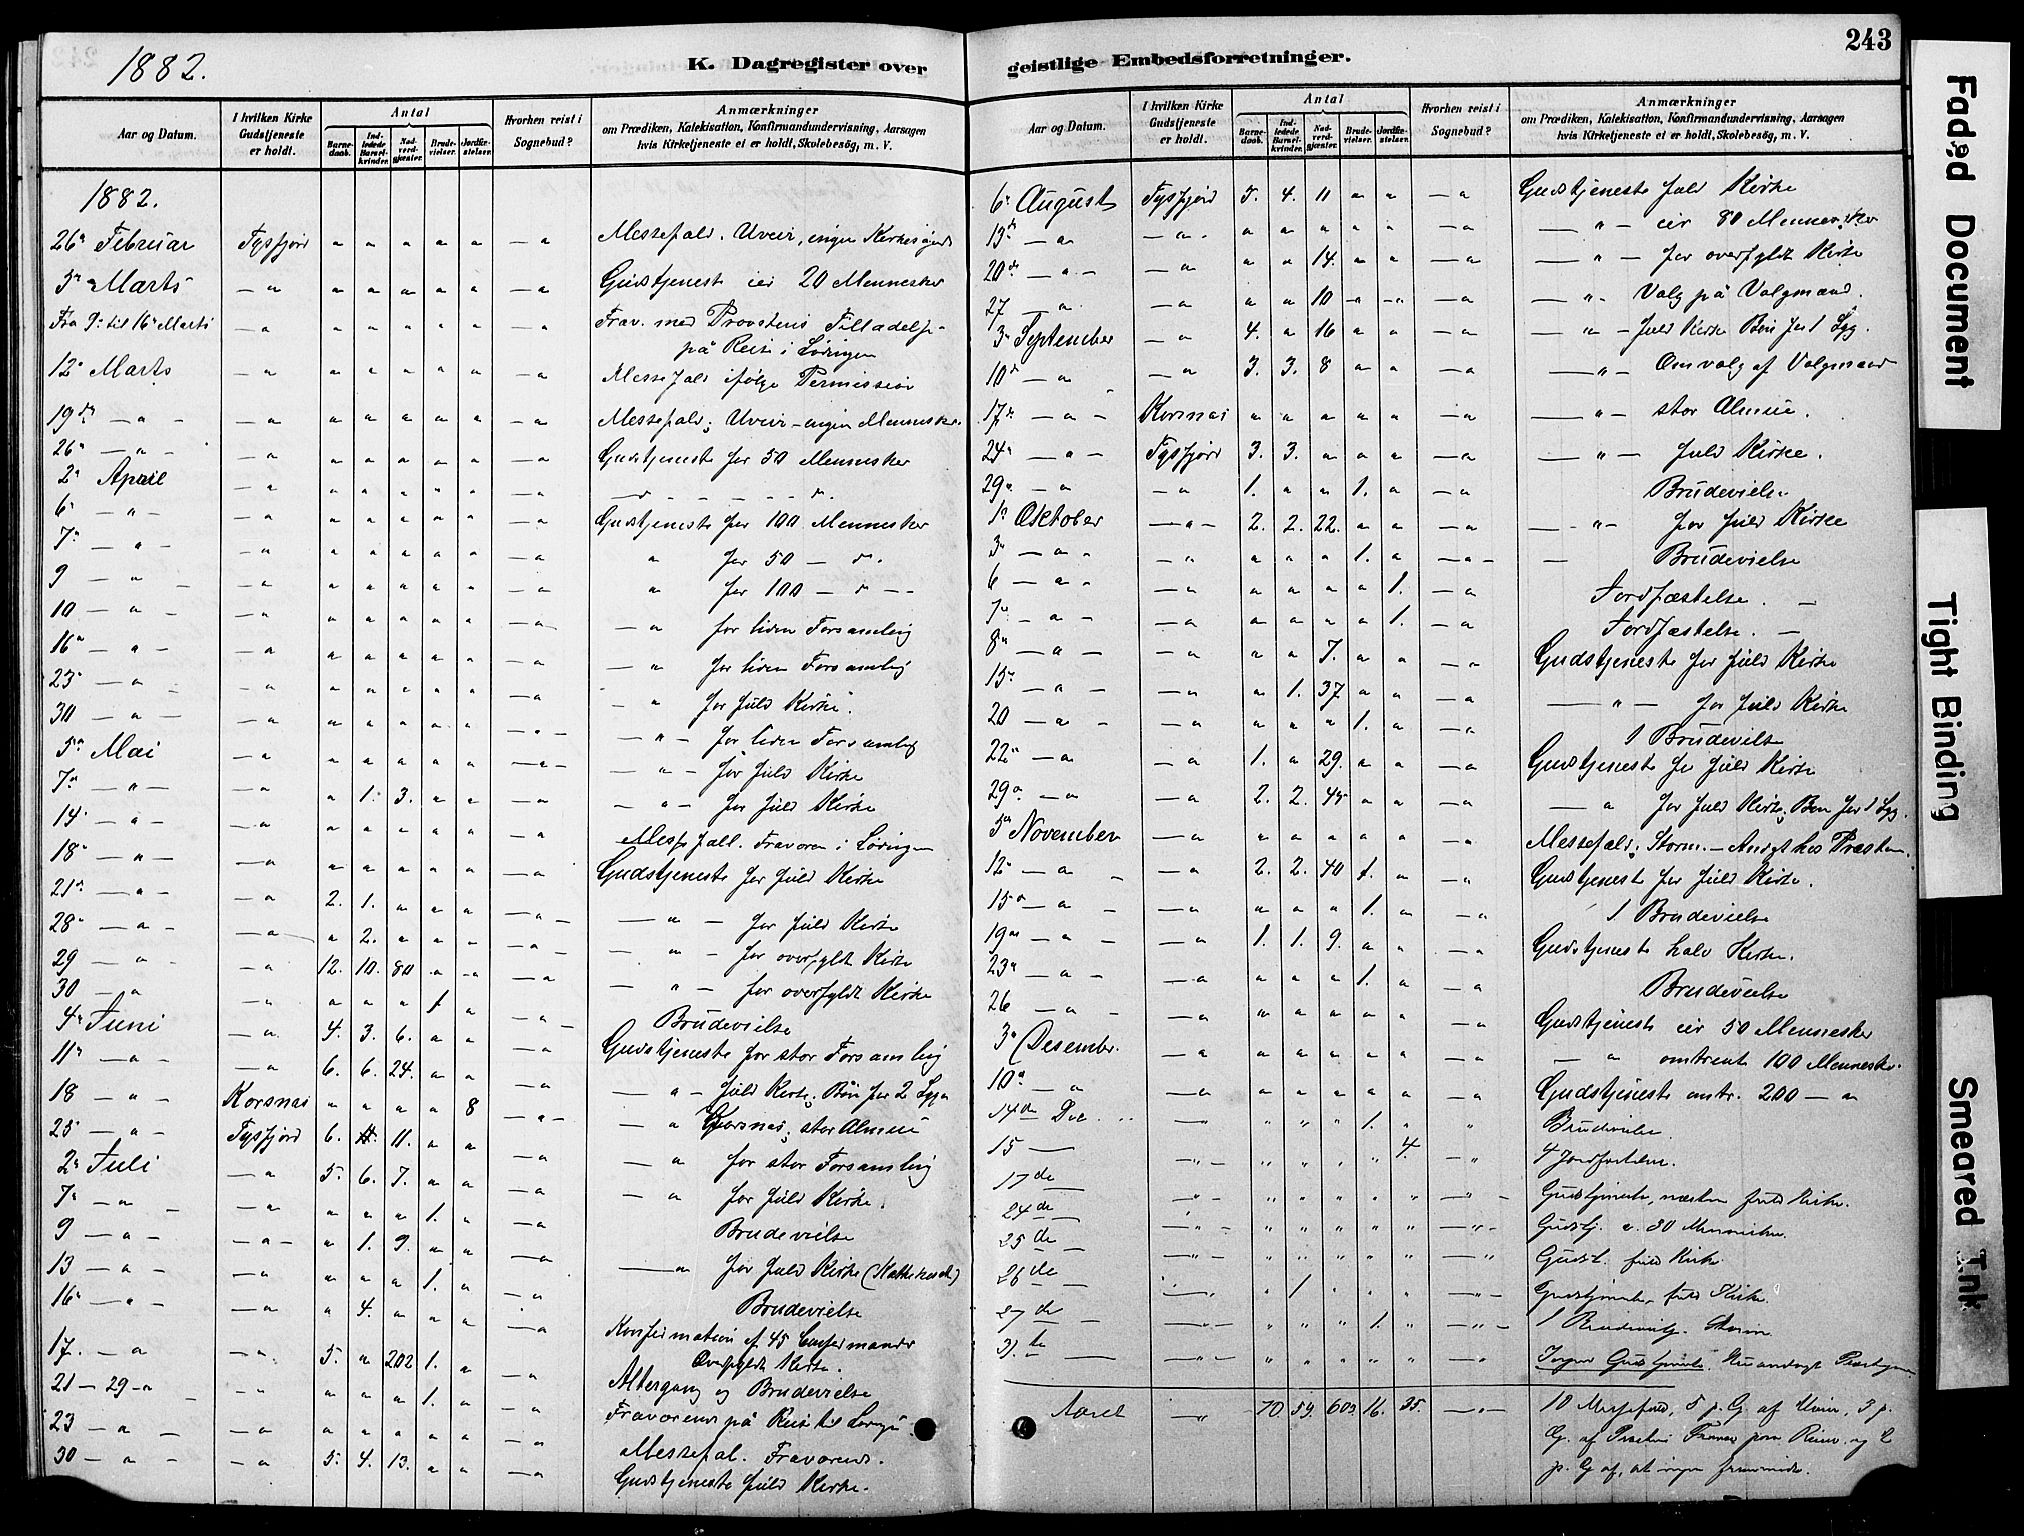 1882.
K. Dagregister over
Aar og Datum. I hvilken Kirke Gudstjeneste er holdt. Antal Barnedaab. Indledede Barselkvinder. Nadverdgjæster. Brudevielser. Jordfæstelser. Hvorhen reist i Sognebud? Anmærkninger om Prædiken, Katekisation, Konfirmandundervisning, Aarsagen hvis Kirketjeneste ei er holdt, Skolebesög, m. V.
1882.
26 Februar Tysfjord " " " " " — " Messefald. Uveir, ingen Kirkesøgende
5 Marts — " " " " " " — " Gudstjeneste cir 20 Mennesker
Fra 9 til 16 Marts — " " " " " " — " Frav. med Provstens Tilladelse
på Reise i Lødingen
12 Marts — " " " " " " — " Messefald ifølge Permission
19de — " — — " " " " " " — " Messefald; Uveir – ingen Mennesker.
26 — " — — " " " " " " — " Gudstjeneste for 50 Mennesker
2 April — " " " " " " — " — d — — — — d.
6 — " — — " " " " " " — " Gudstjeneste for 100 Mennesker
7 — " — — " " " " " " — " " for 50 — d.
9 — " — — " " " " " " — " " for 100 — d — —
10 — " — — " " " " " " — " — " for liden Forsamling
16 — " — — " " " " " " — " — " for liden Forsamling
23 — " — — " " " " " " — " — " for fuld Kirke.
30 — " — — " " " " " " — " — — " — for liden Forsamling
5 Mai — " " " " " " — " — — " — for fuld Kirke
7 — " — " " 1. 3. " " — " — " — for fuld Kirke
14 — " — — " " " " " " — " Messefall. Fravoren i Lødingen
18 — " — — " " " " " " — " Gudstjeneste for fuld Kirke
21 — " — — " 2. 1. " " " — " — — " — for fuld Kirke
28 — " — — " " 2. " " " — " — " — for overfyldt Kirke
29 — " — — " 12. 10. 80 " " — " — " — for overfyldt Kirke
30 — " " " " " 1 " — " — Brudevielse
4 Juni — " 4. 3. 6. " " — " Gudstjeneste for stor Forsamling
11 — " — — " 6. 6. 24. " " — " — " — fuld Kirke. Bøn for 2 Syge
18 — " — Korsnæs " " " " 8 — " — — " Korsnæs, stor Almue
25 — " — Tysfjord 6. 4. 11. " " — " — " for stor Forsamling
2 Juli — " 5. 6. 7. " " — " — " for fuld Kirke.
7 — " — — " " " " 1. " — " Brudevielse
9 — " — — " — " 1. 9. " " — " — " for fuld Kirke (Kathekisat.)
13 — " — — " " " " 1. " — " Brudevielse
16 — " — — " " 4. " " " — " Konfirmation af 45 Confirmander
Overfyldt Kirke.
17. — " — " 5. " 202 1. " — " Altergang og Brudevielse
21 — 29 — " " " " 1. " — " Fravorende på Reise til Lødingen
23 — " — " " " " " " — " Messefal. Fravorend.
30 — " — — " 5. 4. 13. " " — " Gudstjeneste fuld Kirke.
geistlige Embedsforretninger.
243
Aar og Datum. I hvilken Kirke Gudstjeneste er holdt. Antal Barnedaab. Indledede Barselkvinder. Nadverdgjæster. Brudevielser. Jordfæstelser. Hvorhen reist i Sognebud? Anmærkninger om Prædiken, Katekisation, Konfirmandundervisning, Aarsagen hvis Kirketjeneste ei er holdt, Skolebesög, m. V.
6 August Tysfjord 5. 4. 11 " " — " Gudstjeneste fuld Kirke
13 — " — " " " " " " — " — " — cir 80 Mennesker
20de — " — — " " " 14. " " — " — " — for overfyldt Kirke
27 — " — " " " 10 " " — " — " — Valg på Valgmænd.
3 September — " 4. " 16 " " — " — " — fuld Kirke Bøn for 1 Syg.
10 — " — " 3. 3. 8 " " — " — " — Omvalg af Valgmænd
17de — " — Korsnæs " " " " " — " — " — stor Almue.
24 — " — Tysfjord 3. 3. " " " — " — " — fuld Kirke.
29 — " — " 1. " " 1. " — " Brudevielse
1 Oktober — " — 2. 2. 22. " " — " — " — for fuld Kirke
3 — " — — " " " " 1. " — " — — Brudevielse
6 — " — — " " " " " 1. — " Jordfæstelse. —
7 — " — — " " " " " 1. — " Jordfæstelse. —
8 — " — — " " " 7. " " — " Gudstjeneste for fuld Kirke
15 — " — — " " 1. 37 " " — " — " — for fuld Kirke
20 — " — — " " " " 1. " — " 1 Brudevielse
22 — " — " 1. " 29. " " — " Gudstjeneste for fuld Kirke
29 — " — " 2. 2. 45 " " — " — " for fuld Kirke, Bøn for 1 Syg.
5 November — " " " " " " — " Messefald. Storm. – Andagt hos Præsten.
12 — " — — " 2. 2. 40 1. " — " Gudstjeneste for fuld Kirke.
15 — " — — " " " " 1. " — " 1 Brudevielse
19 — " — — " 1. 1. 9. " " — " Gudstjeneste halv Kirke.
23 — " — — " " " " 1. " — " Brudevielse
26 — " — — " " " " " " — " Gudstjeneste cir 50 Mennesker
3 Desembr. — " " " " " " — " — " omtrent 100 Mennesker.
10 — " — " " " " " " — " Gudstjeneste omtr. 200 — "
14de Dec. " " " " 1. " " Brudevielse.
15 — — " — " " " " 4. — " 4 Jordfæstelser.
17de — " — " " " " " — " — Gudstjeneste, næsten fuld Kirke.
24de — " — " " " " " — " — Gudstj. c. 30 Mennesker.
25 de — " — " " " " " — " Gudst. fuld Kirke.
26 de — " " 1 " " " — " — Gudstjeneste, fuld Kirke.
27 de — " — " " " 1. " — " — 1 Brudevielse. Storm.
31.te — " — " " " " " — " Ingen Gudstjeneste.
Aaret — " 70. 59. 609. 16. 35. — " — 10 Messefald, 5 p. G. af Uveir, 3 p.
G. af Præstens Fravær paa Reiser, og 2
p. G. af, at ingen fremmødte.
Faded Document
Tight Binding
Smeared Ink